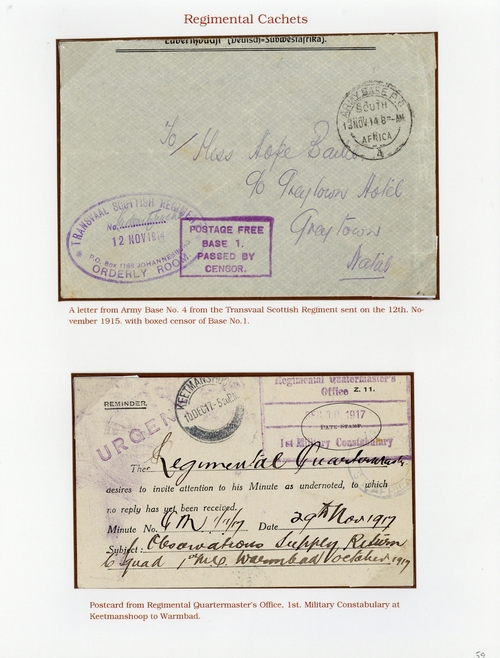 Regimental Cachets
Lüderitzbucht (Deutsch-Südwestafrika).
ARMY BASE P.O.
SOUTH
13 NOV 14 8-AM
AFRICA
4
To/ Miss Hope
c/o Greytown Hotel
Greytown
Natal
TRANSVAAL SCOTTISH REGIMENT
No.
12 NOV 1914
P.O. BOX 1189 JOHANNESBURG
ORDERLY ROOM.
POSTAGE FREE
BASE 1.
PASSED BY
CENSOR.
A letter from Army Base No. 4 from the Transvaal Scottish Regiment sent on the 12th. No-
vember 1915. with boxed censor of Base No.1.
Regimental Quartermaster's
Office
Z. 11.
REMINDER.
KEETMANSHOOP
10 DEC 17
1917
DATE STAMP.
1st Military Constabulary
URGENT
The Regimental Quartermaster
desires to invite attention to his Minute as undernoted, to which
no reply has yet been received.
Minute No. Date 29th Nov 1917
Subject: Observations Supply Return
Squad Warmbad October 1917
Postcard from Regimental Quartermaster's Office, 1st. Military Constabulary at
Keetmanshoop to Warmbad.
59